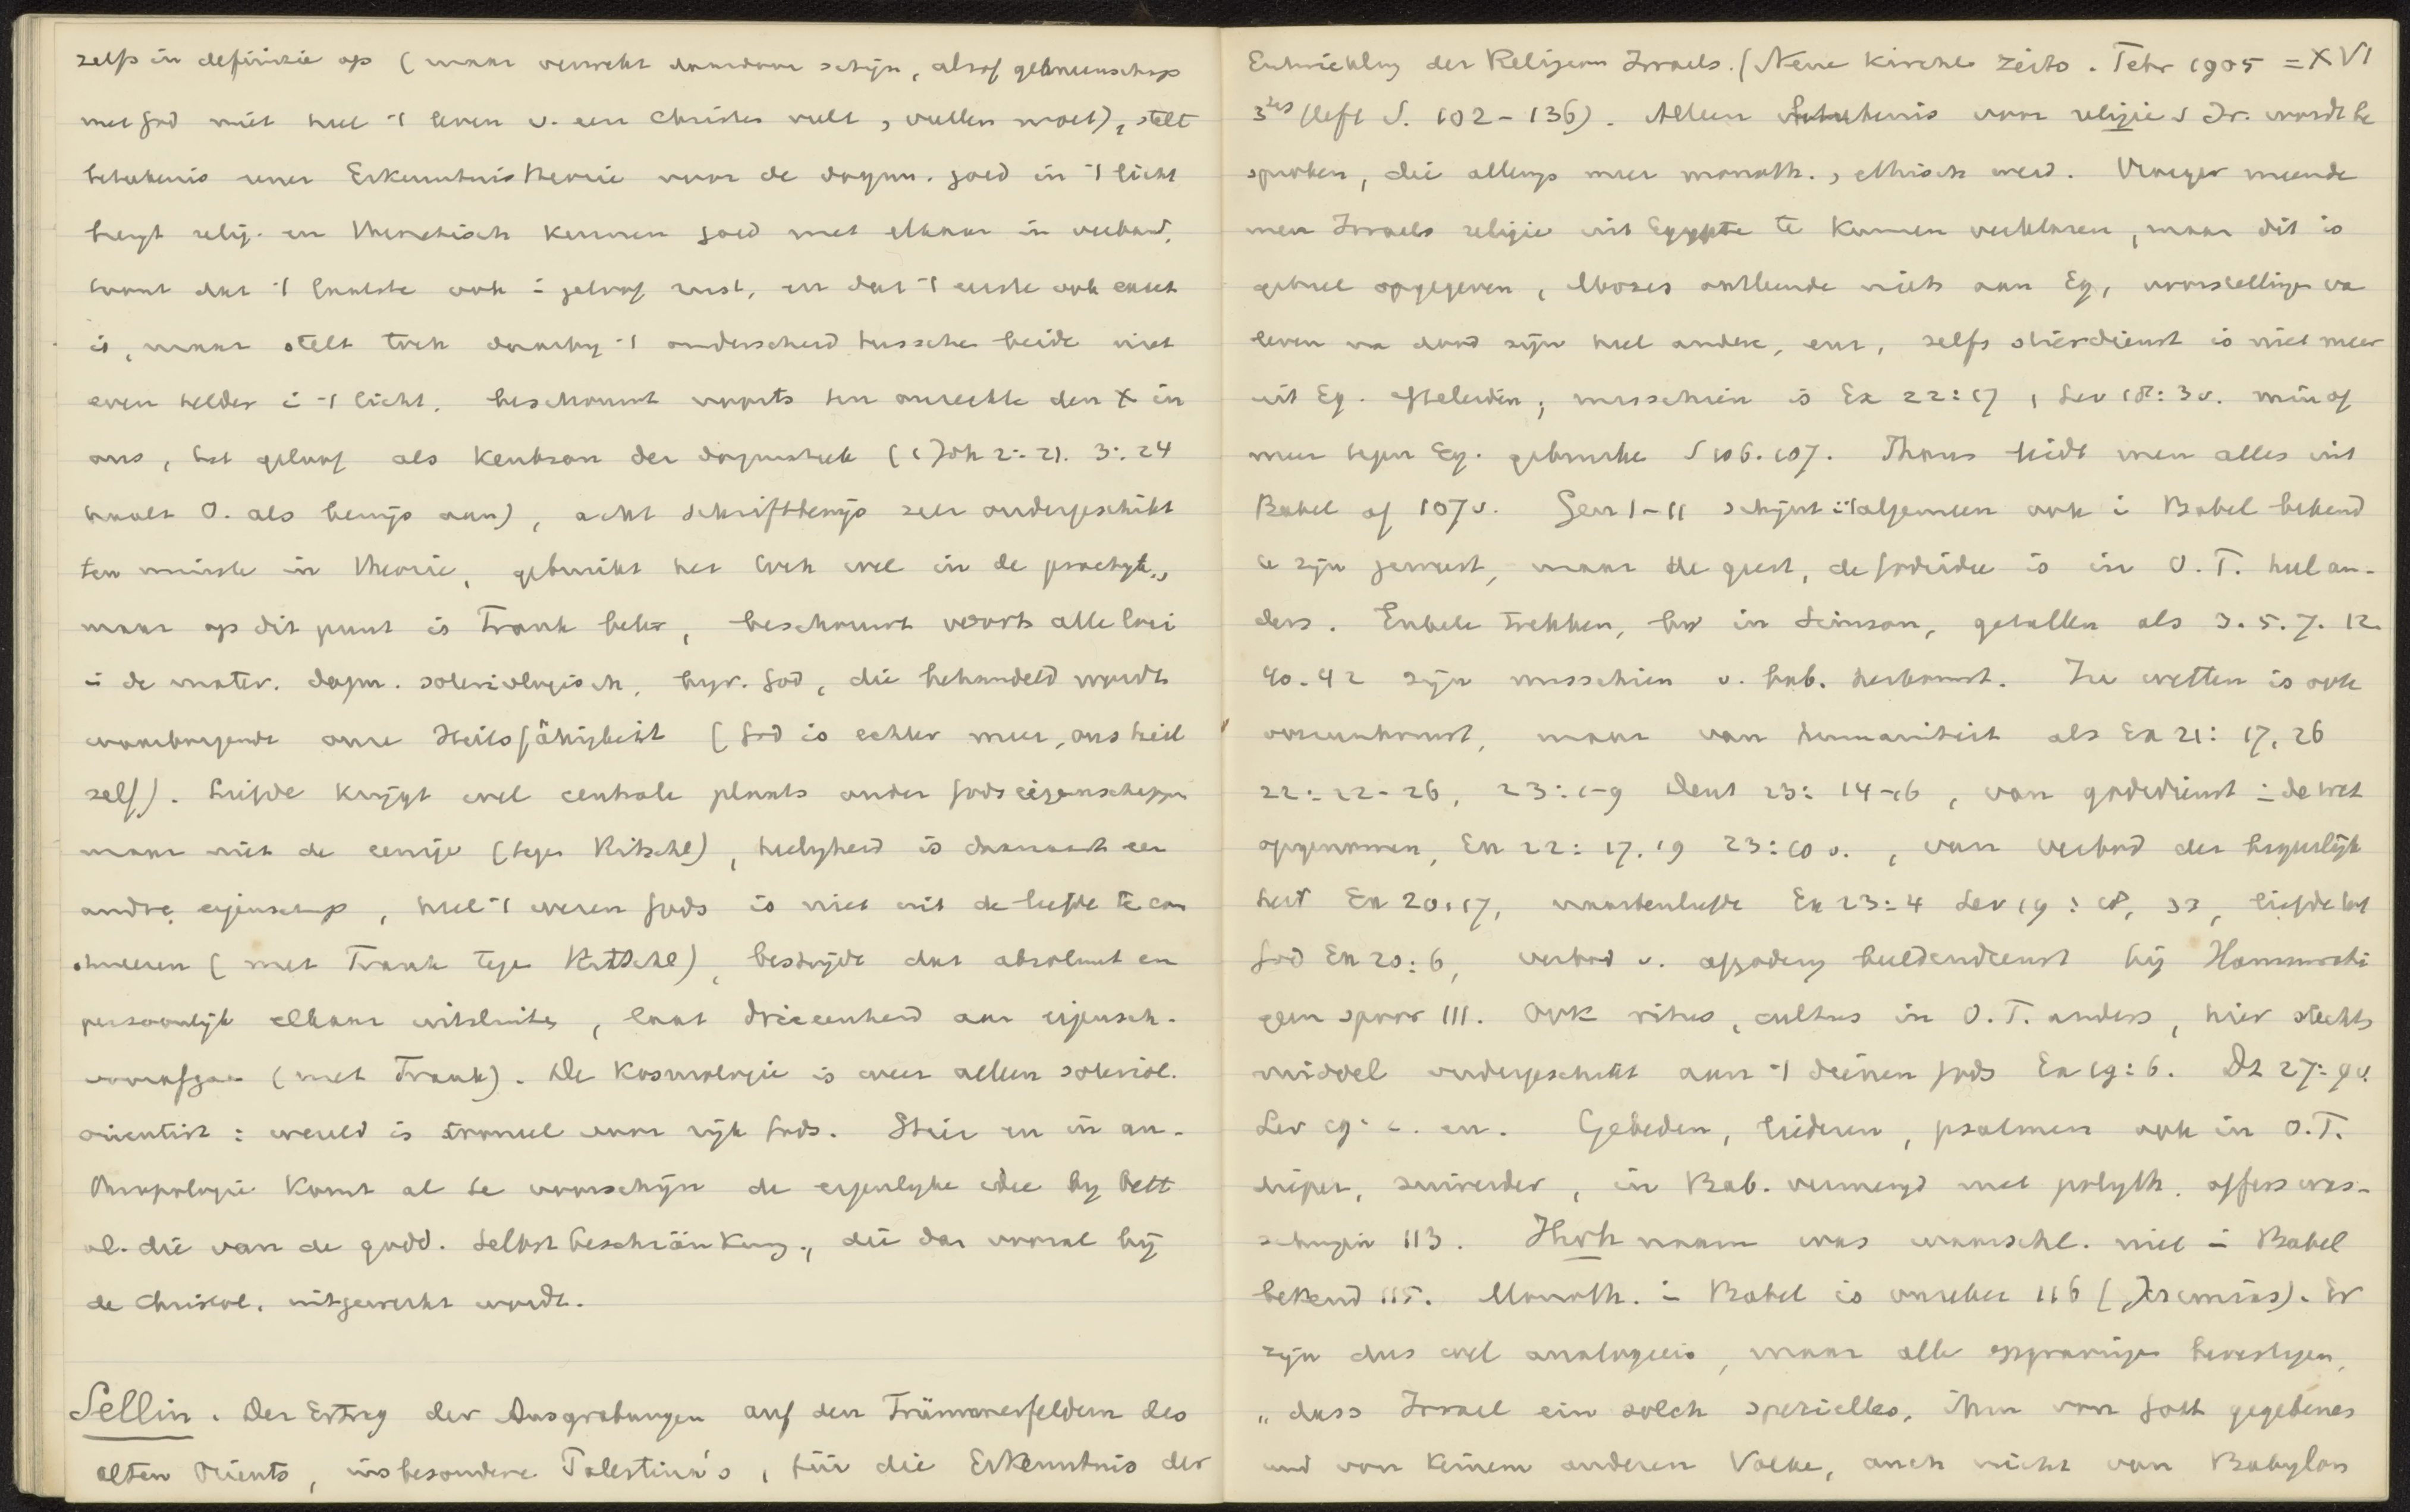 zelfs in definizie op (maar verwekt daardoor schijn, alsof gemeenschap
met God niet heel 't leven v. een Christen vult, vullen moet), stelt
beteekenis eener Erkenntnistheorie voor de dogm. goed in 't licht
brengt relig. en theoretisch kennen goed met elkaar in verband,
want dat 't laatste ook i geloof rust, en dat 't eerste ook exact
is, maar stelt toch daarby 't onderscheid tusschen beide niet
even helder i 't licht, beschouwt voorts ten onrechte den X in
ons, het geloof als kenbron der dogmatiek (1 Joh 2:21. 3:24
haalt O. als bewijs aan), acht Schriftbewijs zeer ondergeschikt
ten minste in theorie, gebruikt het toch wel in de practyk,
maar op dit punt is Frank beter, beschouwt voorts allerlei
i de mater. dogm. soteriologisch, byv. God, die behandeld wordt
waarborgende onze Heilsfähigkeit (God is echter meer, ons heil
zelf). Liefde krijgt wel centrale plaats onder Gods eigenschappen
maar niet de eenige (tegen Ritschl), heiligheid is daarnaast een
andre eigenschap, heel 't wezen Gods is niet uit de liefde te con
strueeren (met Frank tegen Ritschl), bestrijdt dat absoluut en
persoonlijk elkaar uitsluiten, laat drieeenheid aan eigensch.
voorafgaan (met Frank). De Kosmologie is weer alleen soteriol.
orientirt: wereld is voor rijk Gods. Hier en in an-
thropologie komt al te voorschijn de eigenlyke idee by Oett
al. die van de godd. Selbstbeschränkung, die dan vooral bij
de Christol. uitgewerkt wordt.
Sellin. Der Ertrag der Ausgrabungen auf den Trümmerfeldern des
alten Orients, insbesondere Palestina's, für die Erkenntnis der
Entwicklung der Religion Israels. (Neue Kirchl. Zeits. Febr 1905 = XVI
3tes Heft S. 102-136). Alleen beteekenis voor religie v Isr. wordt be
sproken, die allengs meer monoth., ethisch werd. Vroeger meende
men Israels religie uit Egypte te kunnen verklaren, maar dit is
geheel opgegeven, Mozes ontleende niets aan Eg, voorstellingen van
leven na dood zijn heel andere, enz, zelfs stierdienst is niet meer
uit Eg. afteleiden; misschien is Ex 22:17, Lev 18:3v. min of
meer tegen Eg. gebruike S 106.107. Thans leidt men alles uit
Babel af 107v. Gen 1-11 schijnt in 't algemeen ook i Babel bekend
te zijn geweest, maar de geest, de Godsidee is in O.T. heel an-
ders. Enkele trekken, bv in Simson, getallen als 3. 5. 7. 12.
40. 42 zijn misschien v. bab. herkomst. In wetten is ook
overeenkomst, maar van humaniteit als Ex 21: 17, 26
22:22-26, 23:1-9 Deut 23: 14-16, van godsdienst i de wet
opgenomen, Ex 22: 17.19 23:10 v., van verbod der begeerlijk
heid Ex 20:17, naastenliefde Ex 23:4 Lev 19:18, 33, liefde tot
God Ex 20:6, verbod v. afgodery beeldendienst bij Hammurabi
geen spoor 111. Ook ritus, cultus in O.T. anders, hier slechts
middel ondergeschikt aan 't dienen Gods Ex 19:6. Dt 27:9v.
Lev 19: 2. enz. Gebeden, liederen, psalmen ook in O.T.
dieper, zuiverder, in Bab. vermengd met polyth. offers was-
schingen 113. Jhvh naam was waarschl. niet i Babel
bekend 115. Monoth. i Babel is onzeker 116 (Jeremias). Er
zijn dus wel analogieën, maar alle opgravingen bevestigen,
„dass Israel ein solch spezielles, ihm von Gott gegebenes
und von keinem anderen Volke, auch nicht von Babylon